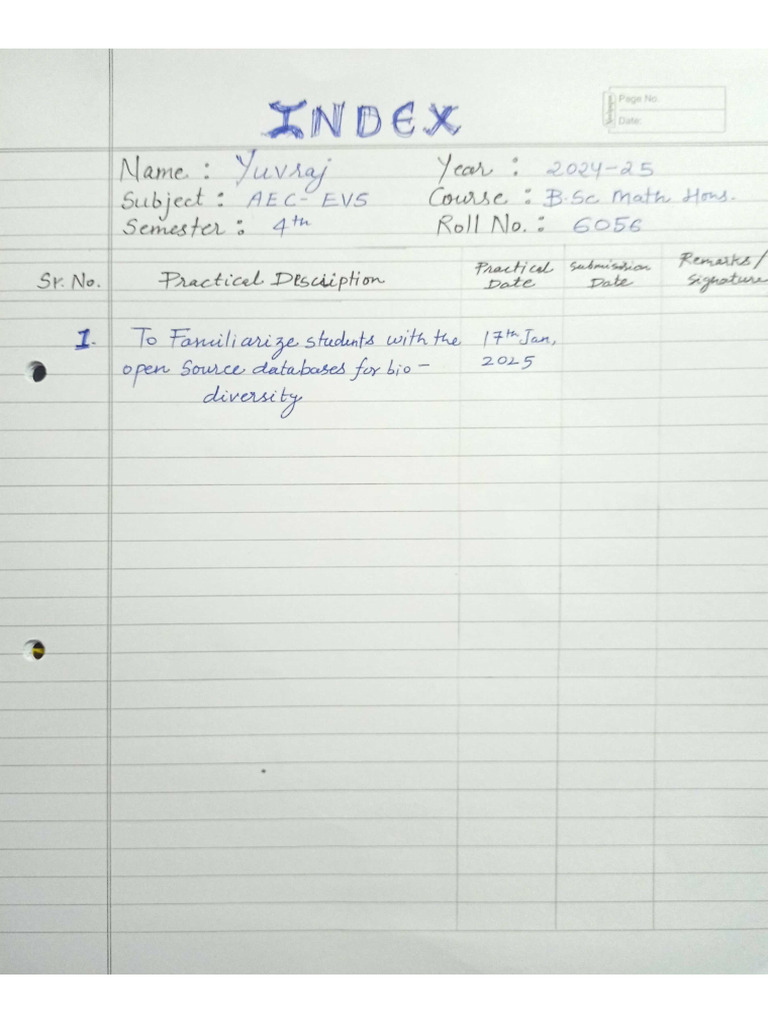 INDEX
Page No.
Date:
Name : Yuvraj Year : 2024-25
Subject : AEC- EVS Course : B.Sc Math Hons.
Semester : 4th Roll No. : 6056
Sr. No. Practical Description Practical Date Submission Date Remarks/ Signature
1. To Familiarize students with the 17th Jan,
open Source databases for bio- 2025
diversity